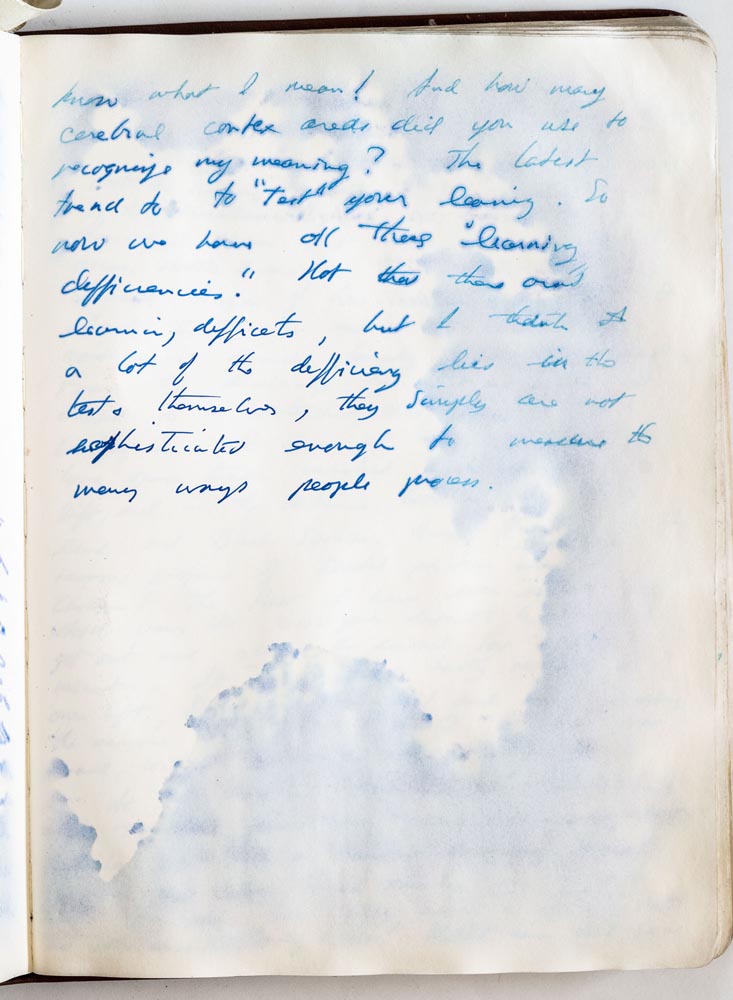 know what I mean! And how many
cerebral cortex areas did you use to
recognize my meaning? The latest
trend to to "Test" your learing. So
now we have all these "learning
defficiencies." Not that there aren't
learning defficets, but I think
a lot of the defficiency lies in the
tests themselves, they simply are not
sophisticated enough to measure the
many ways people process.